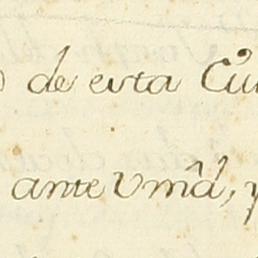 de esta Ciu
ante Vmd, y